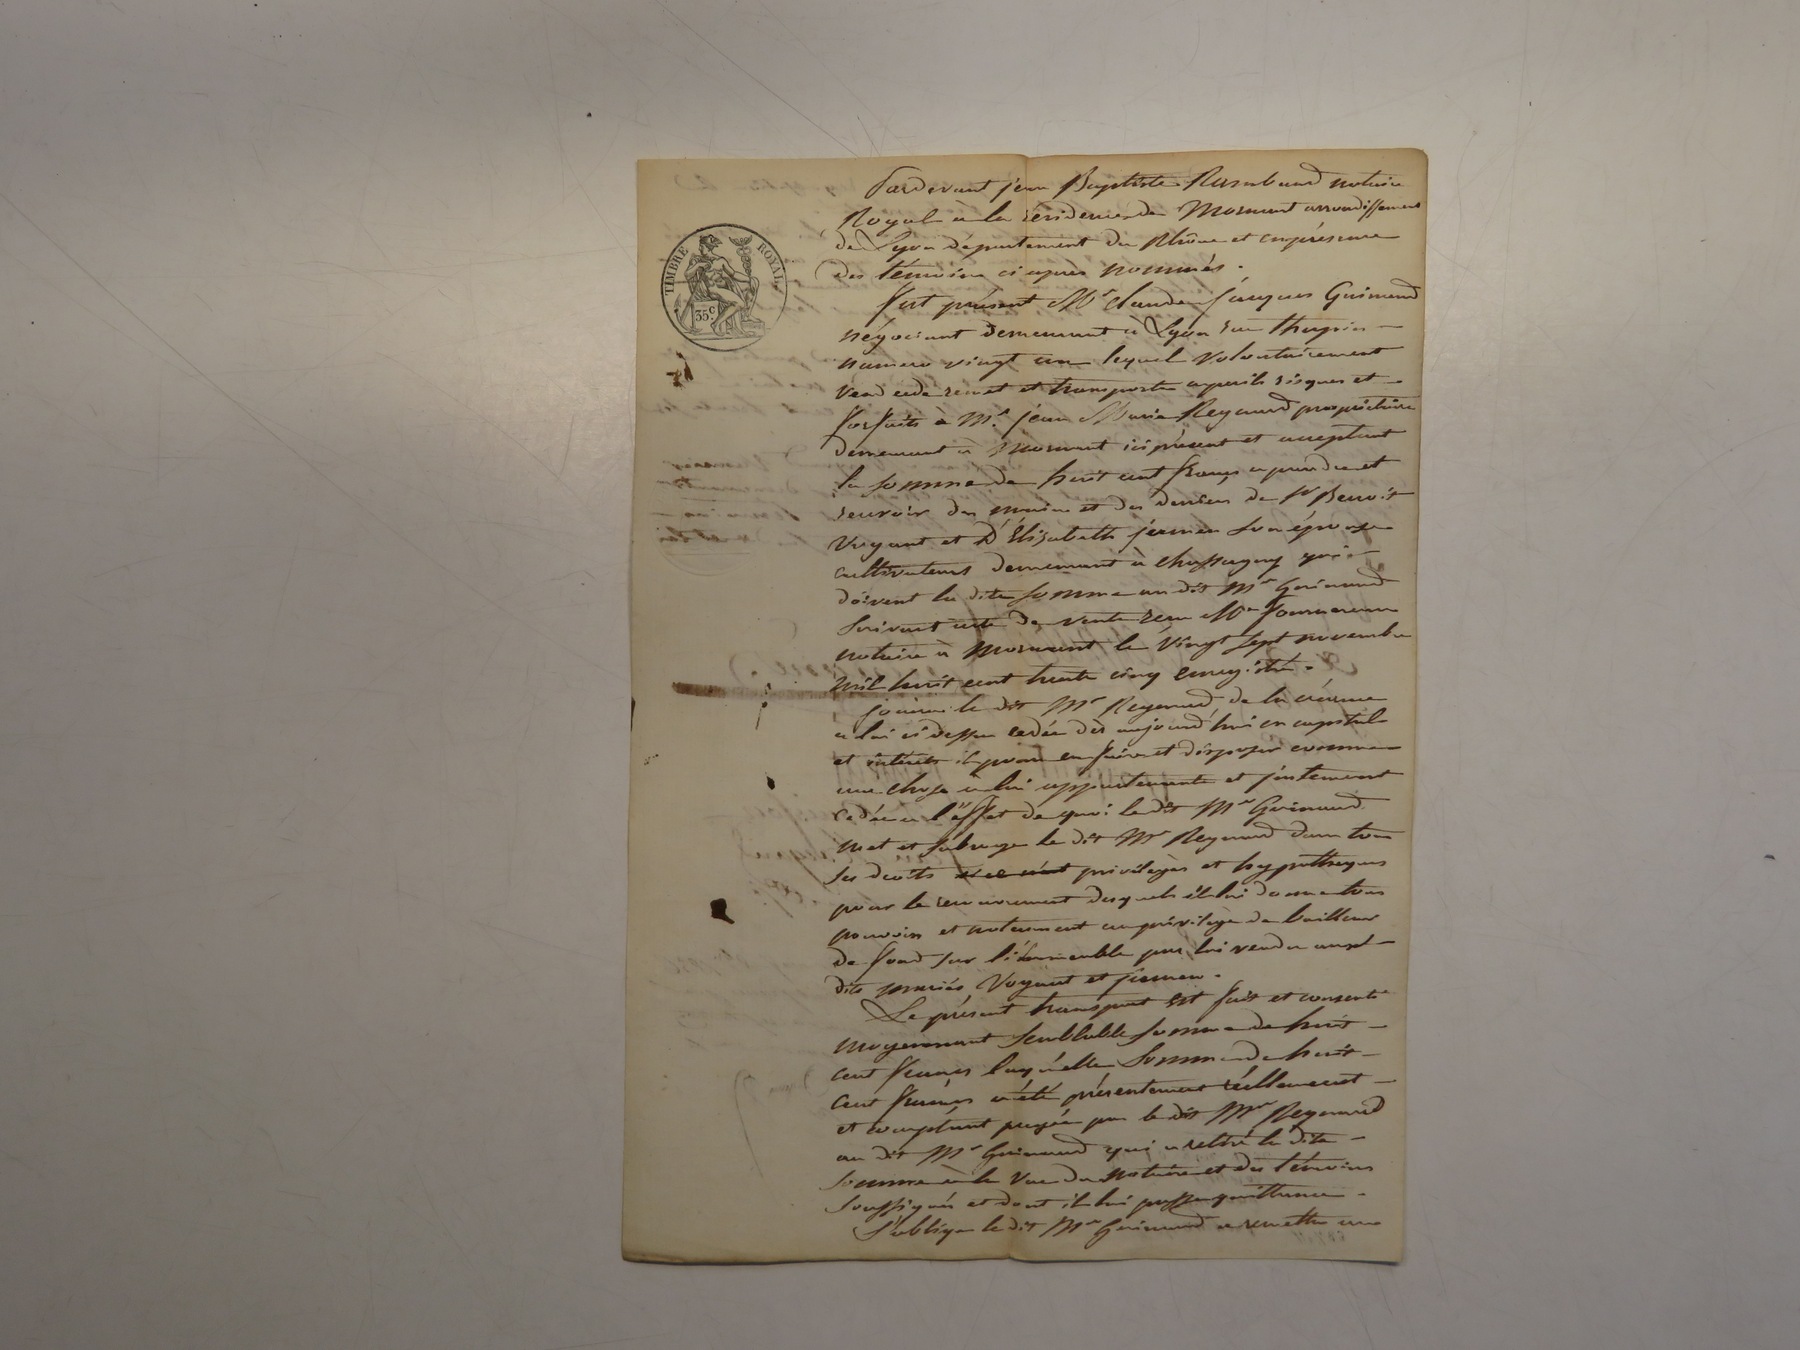 TIMBRE ROYAL
35 C
Pardevant jean Baptiste notaire
Royal à la résidence de Mornant arrondissement
de Lyon département du Rhône et en présence
des témoins ci après nommés.
fut présent Mr Claude Jacques Guinand
négociant demeurant à Lyon rue
numero vingt un lequel volontairement
vend cede remet et transporte a perils risques et
forfaits à Mr. jean Marie Reynard propriétaire
demeurant à Mornant ici présent et acceptant
la somme de huit cent francs a prendre et
recevoir des mains et des deniers de Sr Benoit
Voyant et De Élisabeth son épouse
cultivateurs demeurant à Chassagny qui
doivent la dite somme au dit Mr Guinand
suivant acte de vente reçu Me
notaire à Mornant le vingt sept novembre
mil huit cent trente cinq enregistré.
jouira le dit Mr Reynard de la créance
a lui ci dessus cedée dès aujourd'hui en capital
et intérêts il pourra en faire et disposer comme
une chose à lui appartenante et justement
cedée a l'effet de quoi le dit Mr Guinand
met et subroge le dit Mr Reynard dans tous
ses droits privilèges et hypothèques
pour le recouvrement desquels il lui donne tous
pouvoirs et notamment au privilège de bailleur
de fond sur l'immeuble par lui vendu aux
dits mariés Voyant et
Le présent transport est fait et consenti
moyennant semblable somme de huit
cent francs laquelle somme de huit
cent francs a été présentement réellement
et comptant payée par le dit Mr Reynard
au dit Mr Guinand qui a retiré la dite
somme à la vue du notaire et des témoins
soussignés et dont il lui passe quittance.
S'oblige le dit Mr Guinand a remettre une